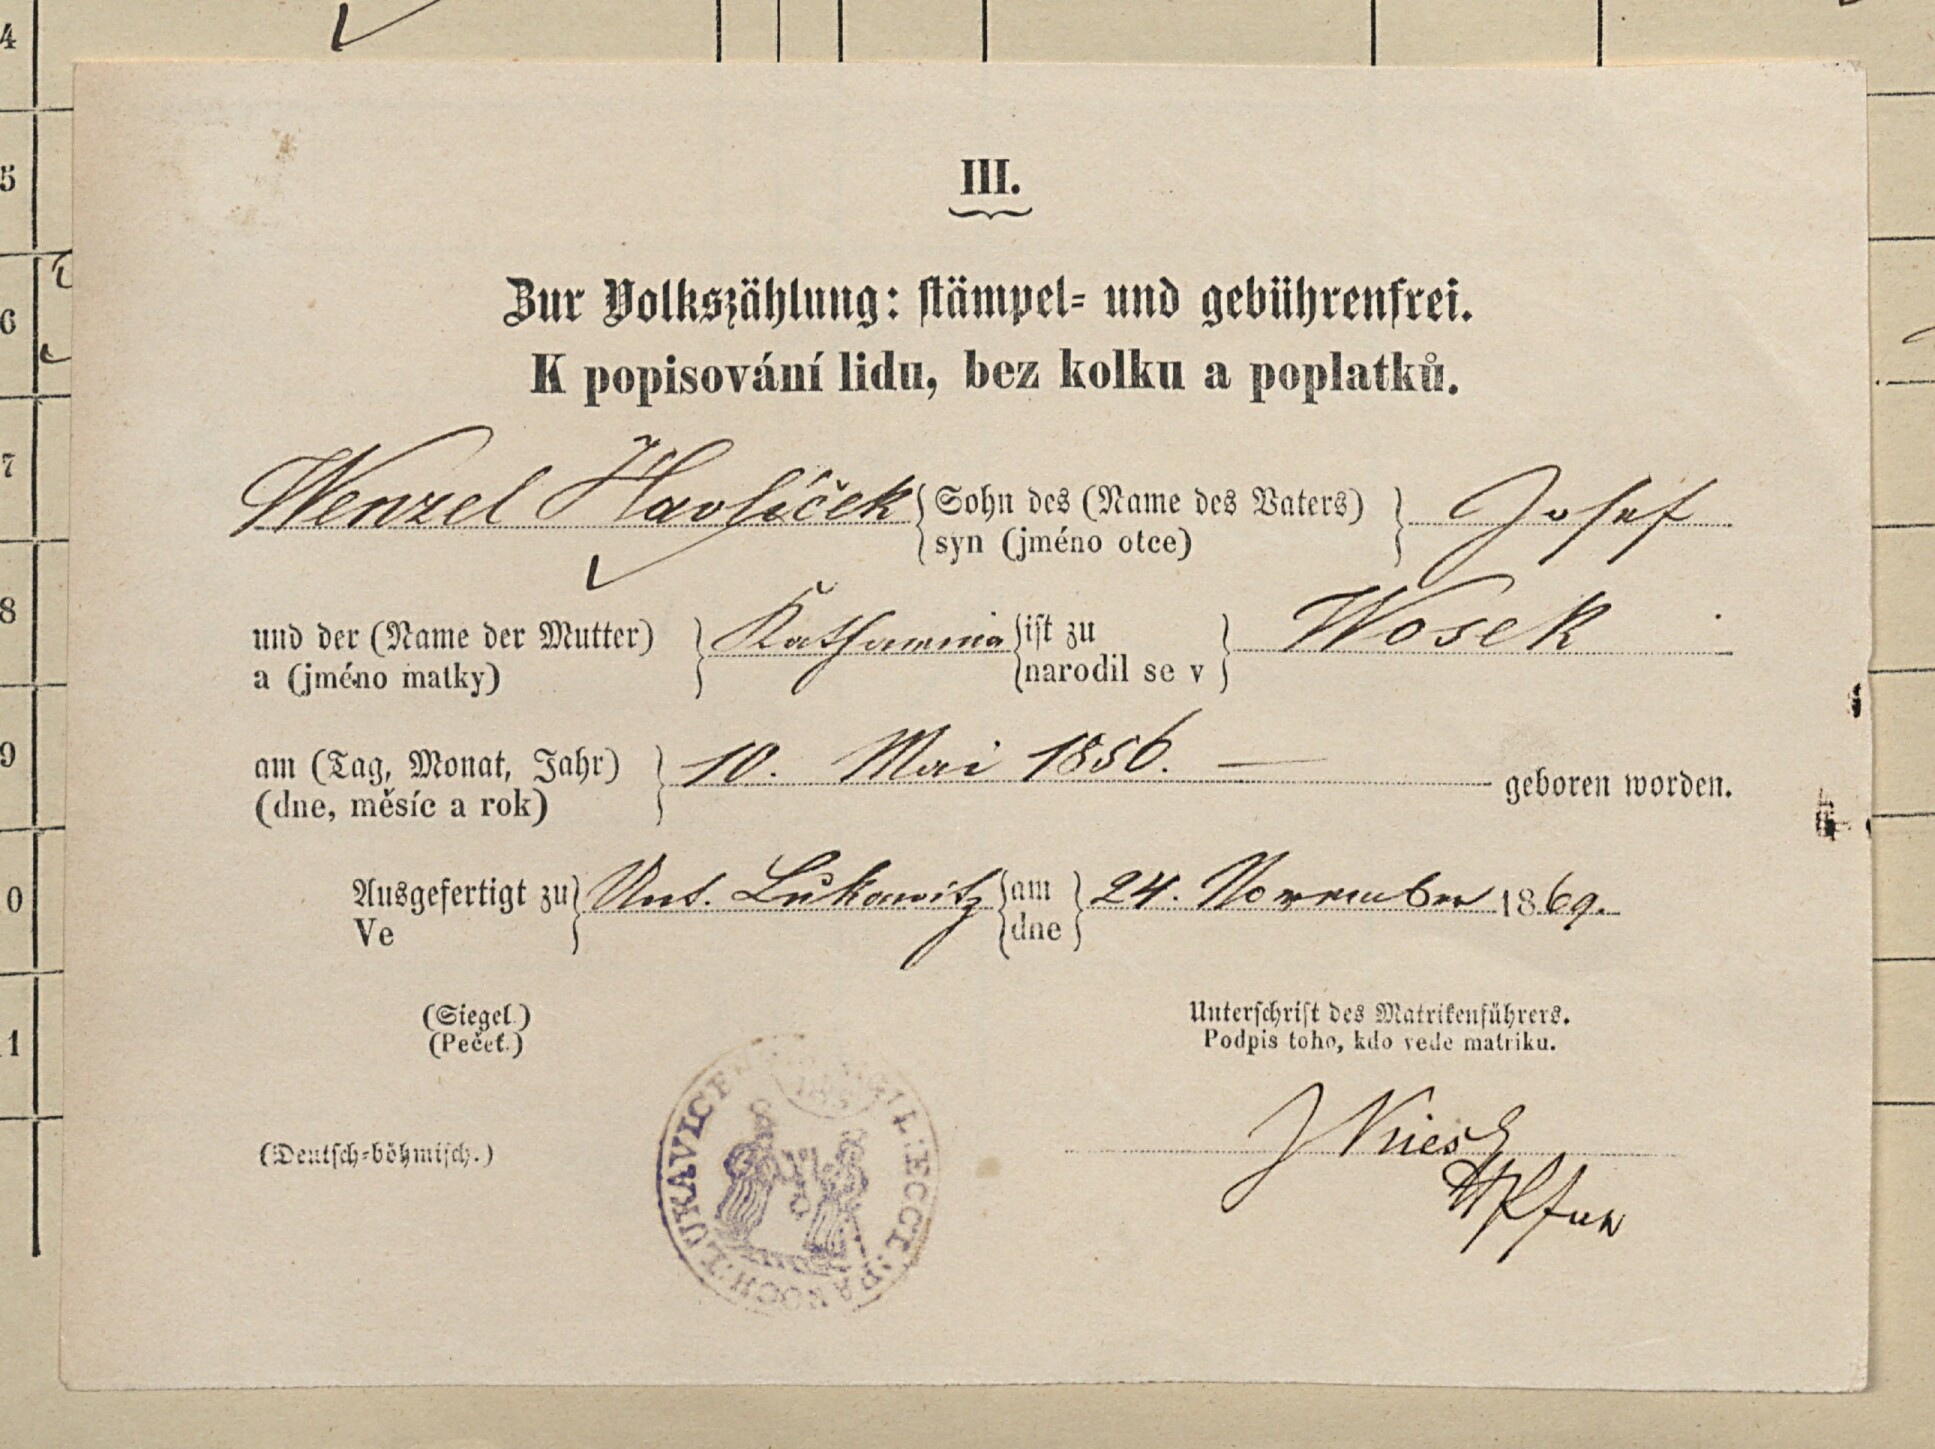 4
5
6
7
8
9
0
1
III.
Zur Volkszählung: stämpel- und gebührenfrei.
K popisování lidu, bez kolku a poplatků.
Wenzel Havlíček { Sohn des (Name des Vaters) } Josef
syn (jméno otce)
und der (Name der Mutter) } Katharina { ist zu } Wosek
a (jméno matky) narodil se v
am (Tag, Monat, Jahr) } 10. Mai 1856. — geboren worden.
(dne, měsíc a rok)
Ausgefertigt zu } Unt. Lukawitz { am } 24. November 1869.
Ve dne
(Siegel.)
(Pečeť.)
Unterschrift des Matrikenführers.
Podpis toho, kdo vede matriku.
(Deutsch-böhmisch.)
LUKAVICE
ECCL: PAROCH:
J
Pfarr